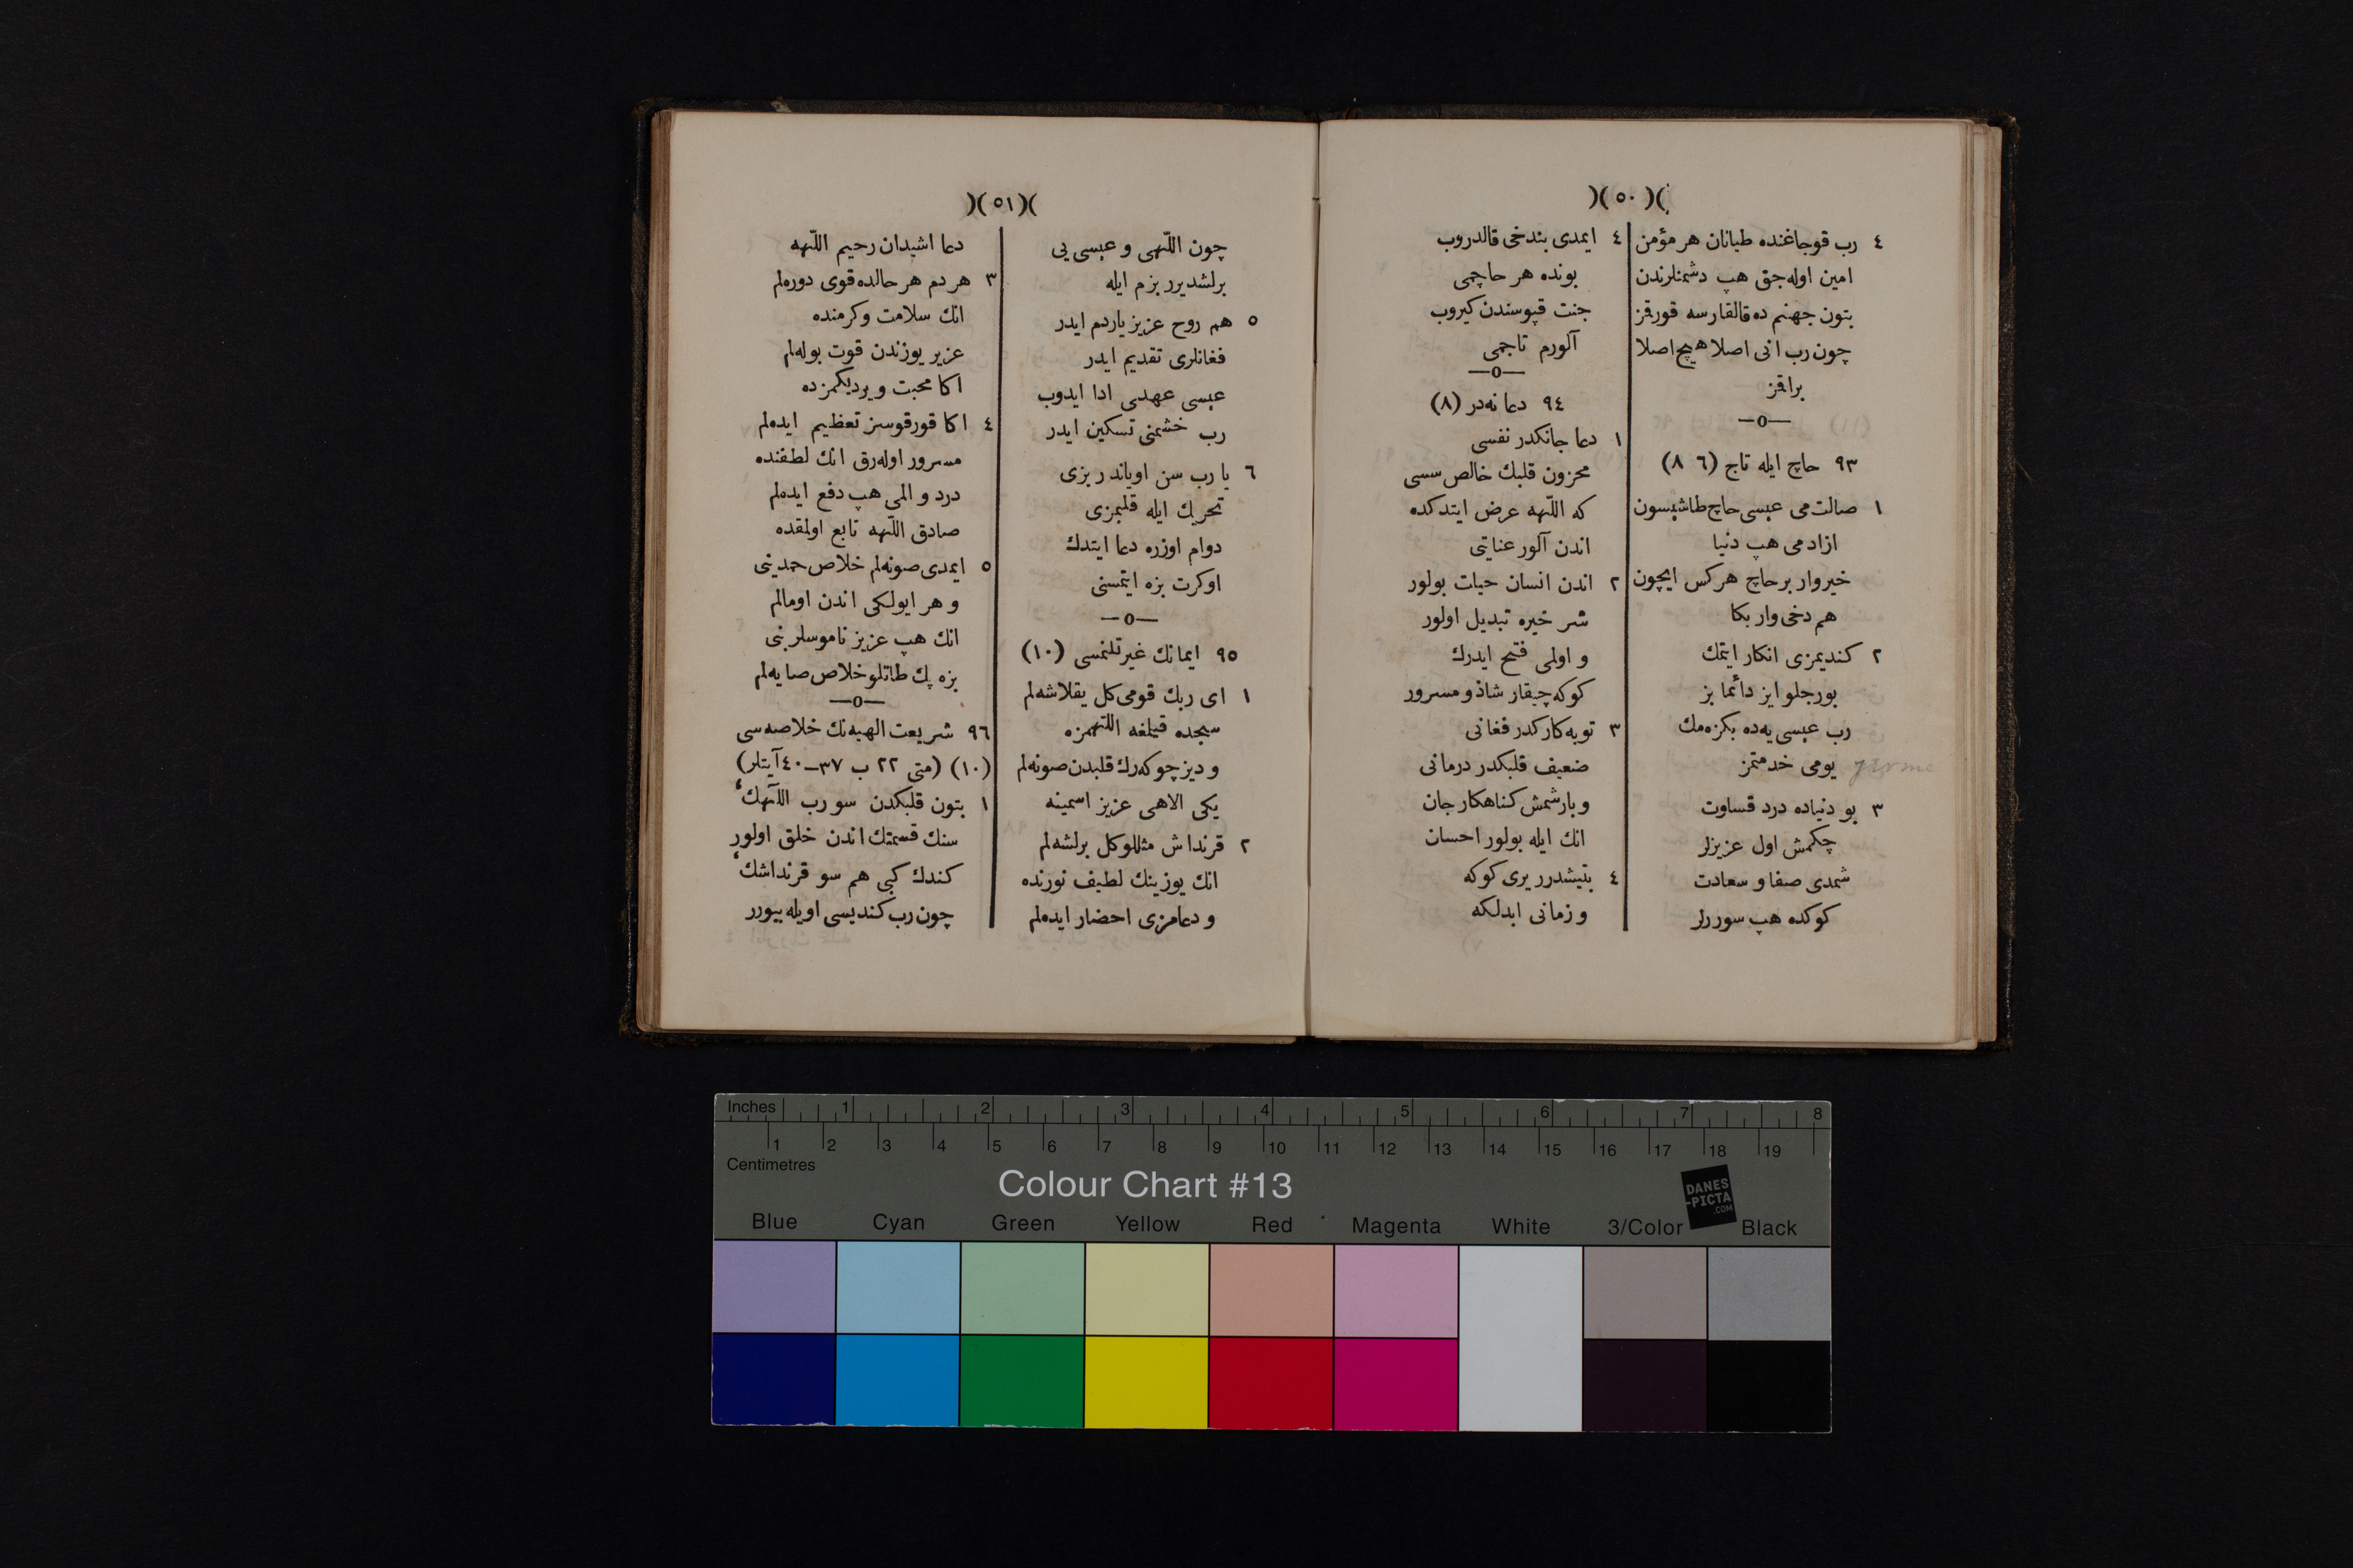 )( ٥٠ )(
٤ رب قوجاغنده طیانان هر مؤمن
امین اوله‌جق هپ دشمنلرندن
بتون جهنم ده قالقارسه قورقمز
چون رب انی اصلا هیچ اصلا
براقمز
—o—
٩٣ حاچ ایله تاج (٨ ٦)
١ صالت‌می عیسی حاچ طاشیسون
ازادمی هپ دنیا
خیر وار بر حاچ هرکس ایچون
هم دخی وار بکا
٢ کندیمزی انکار ایتمك
بورجلو ایز دائما بز
رب عیسی یه‌ده بکزه‌مك
یومی خدمتمز
٣ بو دنیاده درد قساوت
چکمش اول عزیزلر
شمدی صفا و سعادت
کوکده هپ سوررلر
٤ ایمدی بندخی قالدروب
بونده هر حاچمی
جنت قپوسندن کیروب
آلورم تاجمی
—o—
٩٤ دعا نه‌در (٨)
١ دعا جانکدر نفسی
محزون قلبك خالص سسی
که اللّٰهه عرض ایتدکده
اندن آلور عنایتی
٢ اندن انسان حیات بولور
شر خیره تبدیل اولور
و اولمی فتح ایدرك
کوکه چیقار شاذ و مسرور
٣ توبه‌کارکدر فغانی
ضعیف قلبکدر درمانی
و بارشمش کناهکار جان
انك ایله بولور احسان
٤ یتیشدرر یری کوکه
و زمانی ابدلکه
)( ٥١ )(
چون اللّٰهی و عیسی یی
برلشدیرر بزم ایله
٥ هم روح عزیز یاردم ایدر
فغانلری تقدیم ایدر
عیسی عهدی ادا ایدوب
رب خشمنی تسکین ایدر
٦ یا رب سن اویاندر بزی
تحریك ایله قلبمزی
دوام اوزره دعا ایتدك
اوکرت بزه ایتمسنی
—o—
٩٥ ایمانك غیرتلنمسی (١٠)
١ ای ربك قومی کل یقلاشه‌لم
سجده قیلمغه اللّٰهمزه
و دیز چوکه‌رك قلبدن صونه‌لم
یکی الاهی عزیز اسمینه
٢ قرنداش مثللو کل برلشه‌لم
انك یوزینك لطیف نورنده
و دعامزی احضار ایده‌لم
دعا اشیدان رحیم اللّٰهه
٣ هر دم هر حالده قوی دوره‌لم
انك سلامت و کرمنده
عزیر یوزندن قوت بوله‌لم
اکا محبت ویردیکمزده
٤ اکا قورقوسز تعظیم ایده‌لم
مسرور اوله‌رق انك لطفنده
درد و المی هپ دفع ایده‌لم
صادق اللّٰهه تابع اولمقده
٥ ایمدی صونه‌لم خلاص حمدینی
و هر ایولکی اندن اومالم
انك هپ عزیز ناموسلرینی
بزه پك طاتلو خلاص صایه‌لم
—o—
٩٦ شریعت الهیه‌نك خلاصه‌سی
(١٠) (متی ٢٢ ب ٣٧—٤٠ آیتلر)
١ بتون قلبکدن سو رب اللّٰهك،
سنك قسمتك اندن خلق اولور
کندك کبی هم سو قرنداشك،
چون رب کندیسی اویله بیورر
Inches 1 2 3 4 5 6 7 8
1 2 3 4 5 6 7 8 9 10 11 12 13 14 15 16 17 18 19
Centimetres
Colour Chart #13
DANES
-PICTA
.COM
Blue Cyan Green Yellow Red Magenta White 3/Color Black